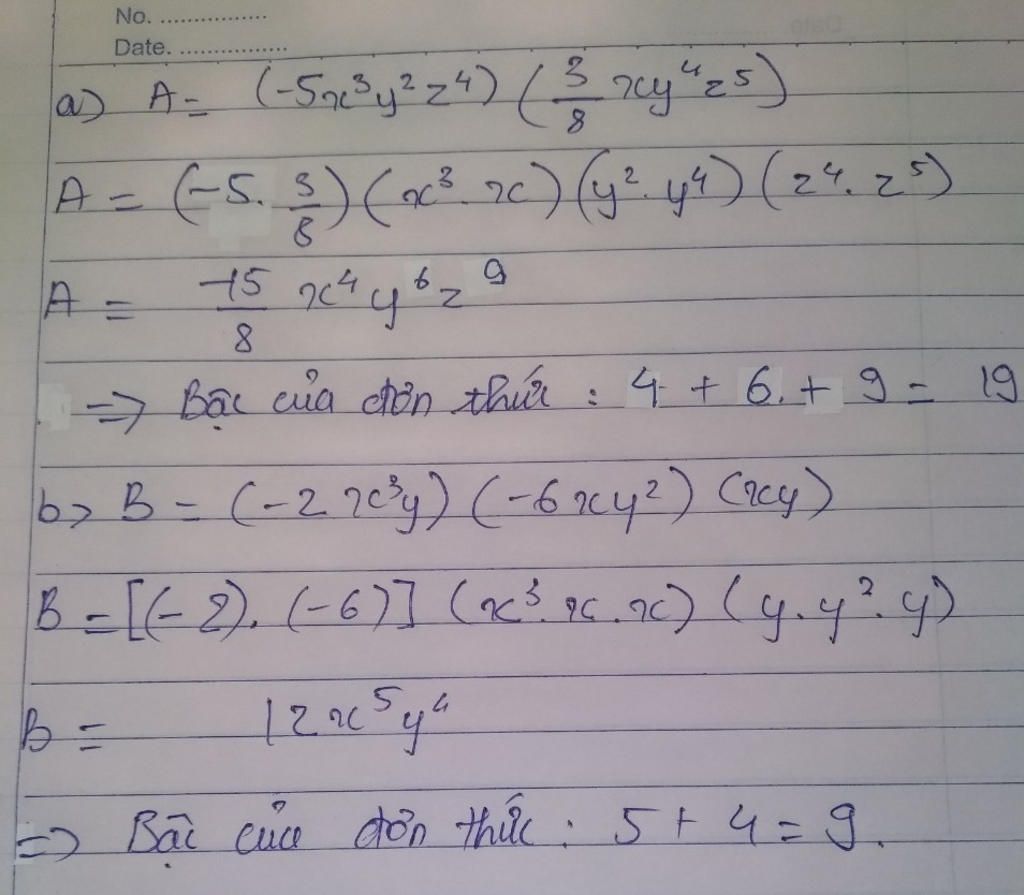 No. ................
Date. ................
a) A = (-5x³y²z⁴) (3/8 xy⁴z⁵)
A = (-5. 3/8) (x³.x) (y².y⁴) (z⁴.z⁵)
A = -15/8 x⁴y⁶z⁹
=> Bậc của đơn thức : 4 + 6 + 9 = 19
b> B = (-2x³y) (-6xy²) (xy)
B = [(-2). (-6)] (x³.x.x) (y.y².y)
B = 12x⁵y⁴
=> Bậc của đơn thức : 5 + 4 = 9.